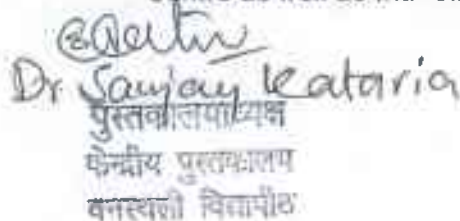 Dr Sanjay Kataria
पुस्तकालयाध्यक्ष
केन्द्रीय पुस्तकालय
वनस्थली विद्यापीठ